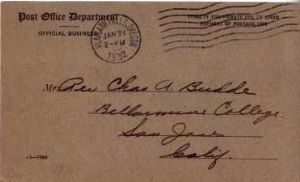 Post Office Department
OFFICIAL BUSINESS
PENALTY FOR PRIVATE USE TO AVOID
PAYMENT OF POSTAGE, $300
KLAMATH FALLS, OREGON
JAN 21
2-PM
1937
Mr. Rev Chas A. Budde
Bellarmine College.
San Jose
Calif.